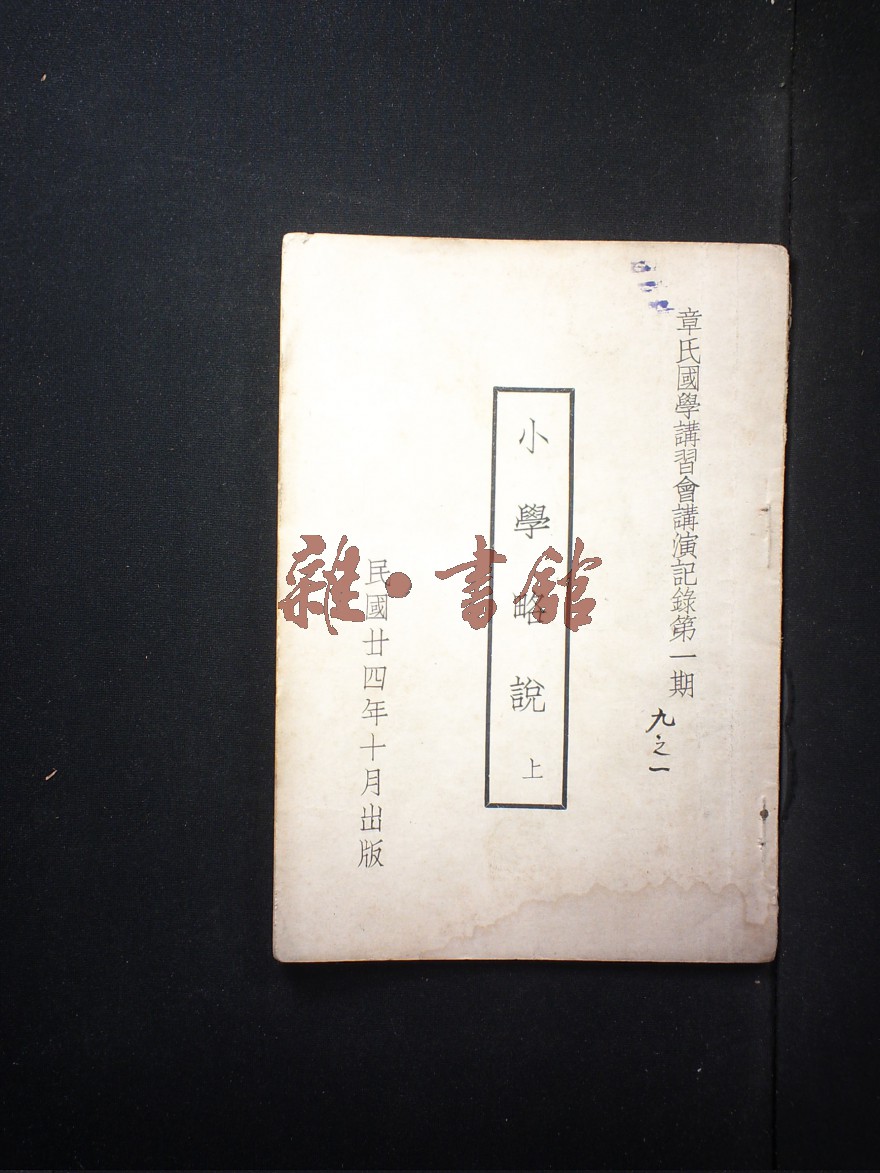 章氏國學講習會講演記錄第一期
九之一
小學略說 上
民國廿四年十月出版
雜·書館